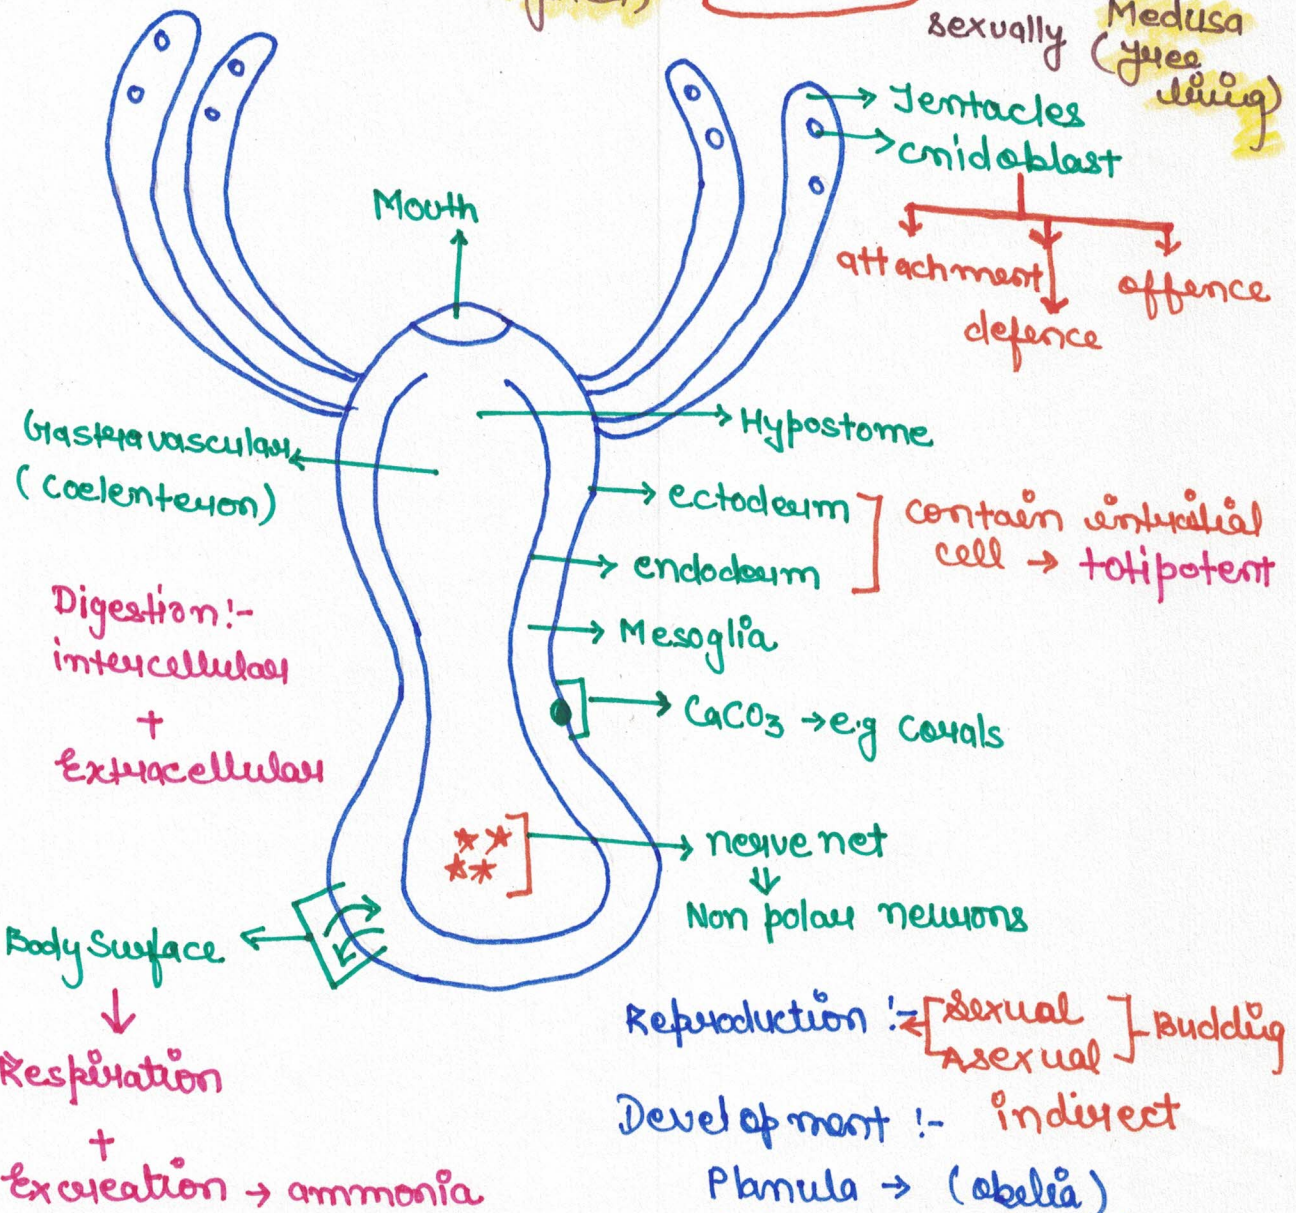 sexually
Medusa
(free
living)
Tentacles
cnidoblast
Mouth
attachment
offence
defence
Gastravascular
(coelenteron)
Hypostome
ectoderm
endoderm
contain intersitial
cell → totipotent
Mesoglia
Digestion:-
intercellular
+
Extracellular
CaCO3 → e.g corals
nerve net
Non polar neurons
Body Surface
Respiration
+
Excreation → ammonia
Reproduction :-
Sexual
Asexual
Buddig
Development :- indirect
Planula → (obelia)